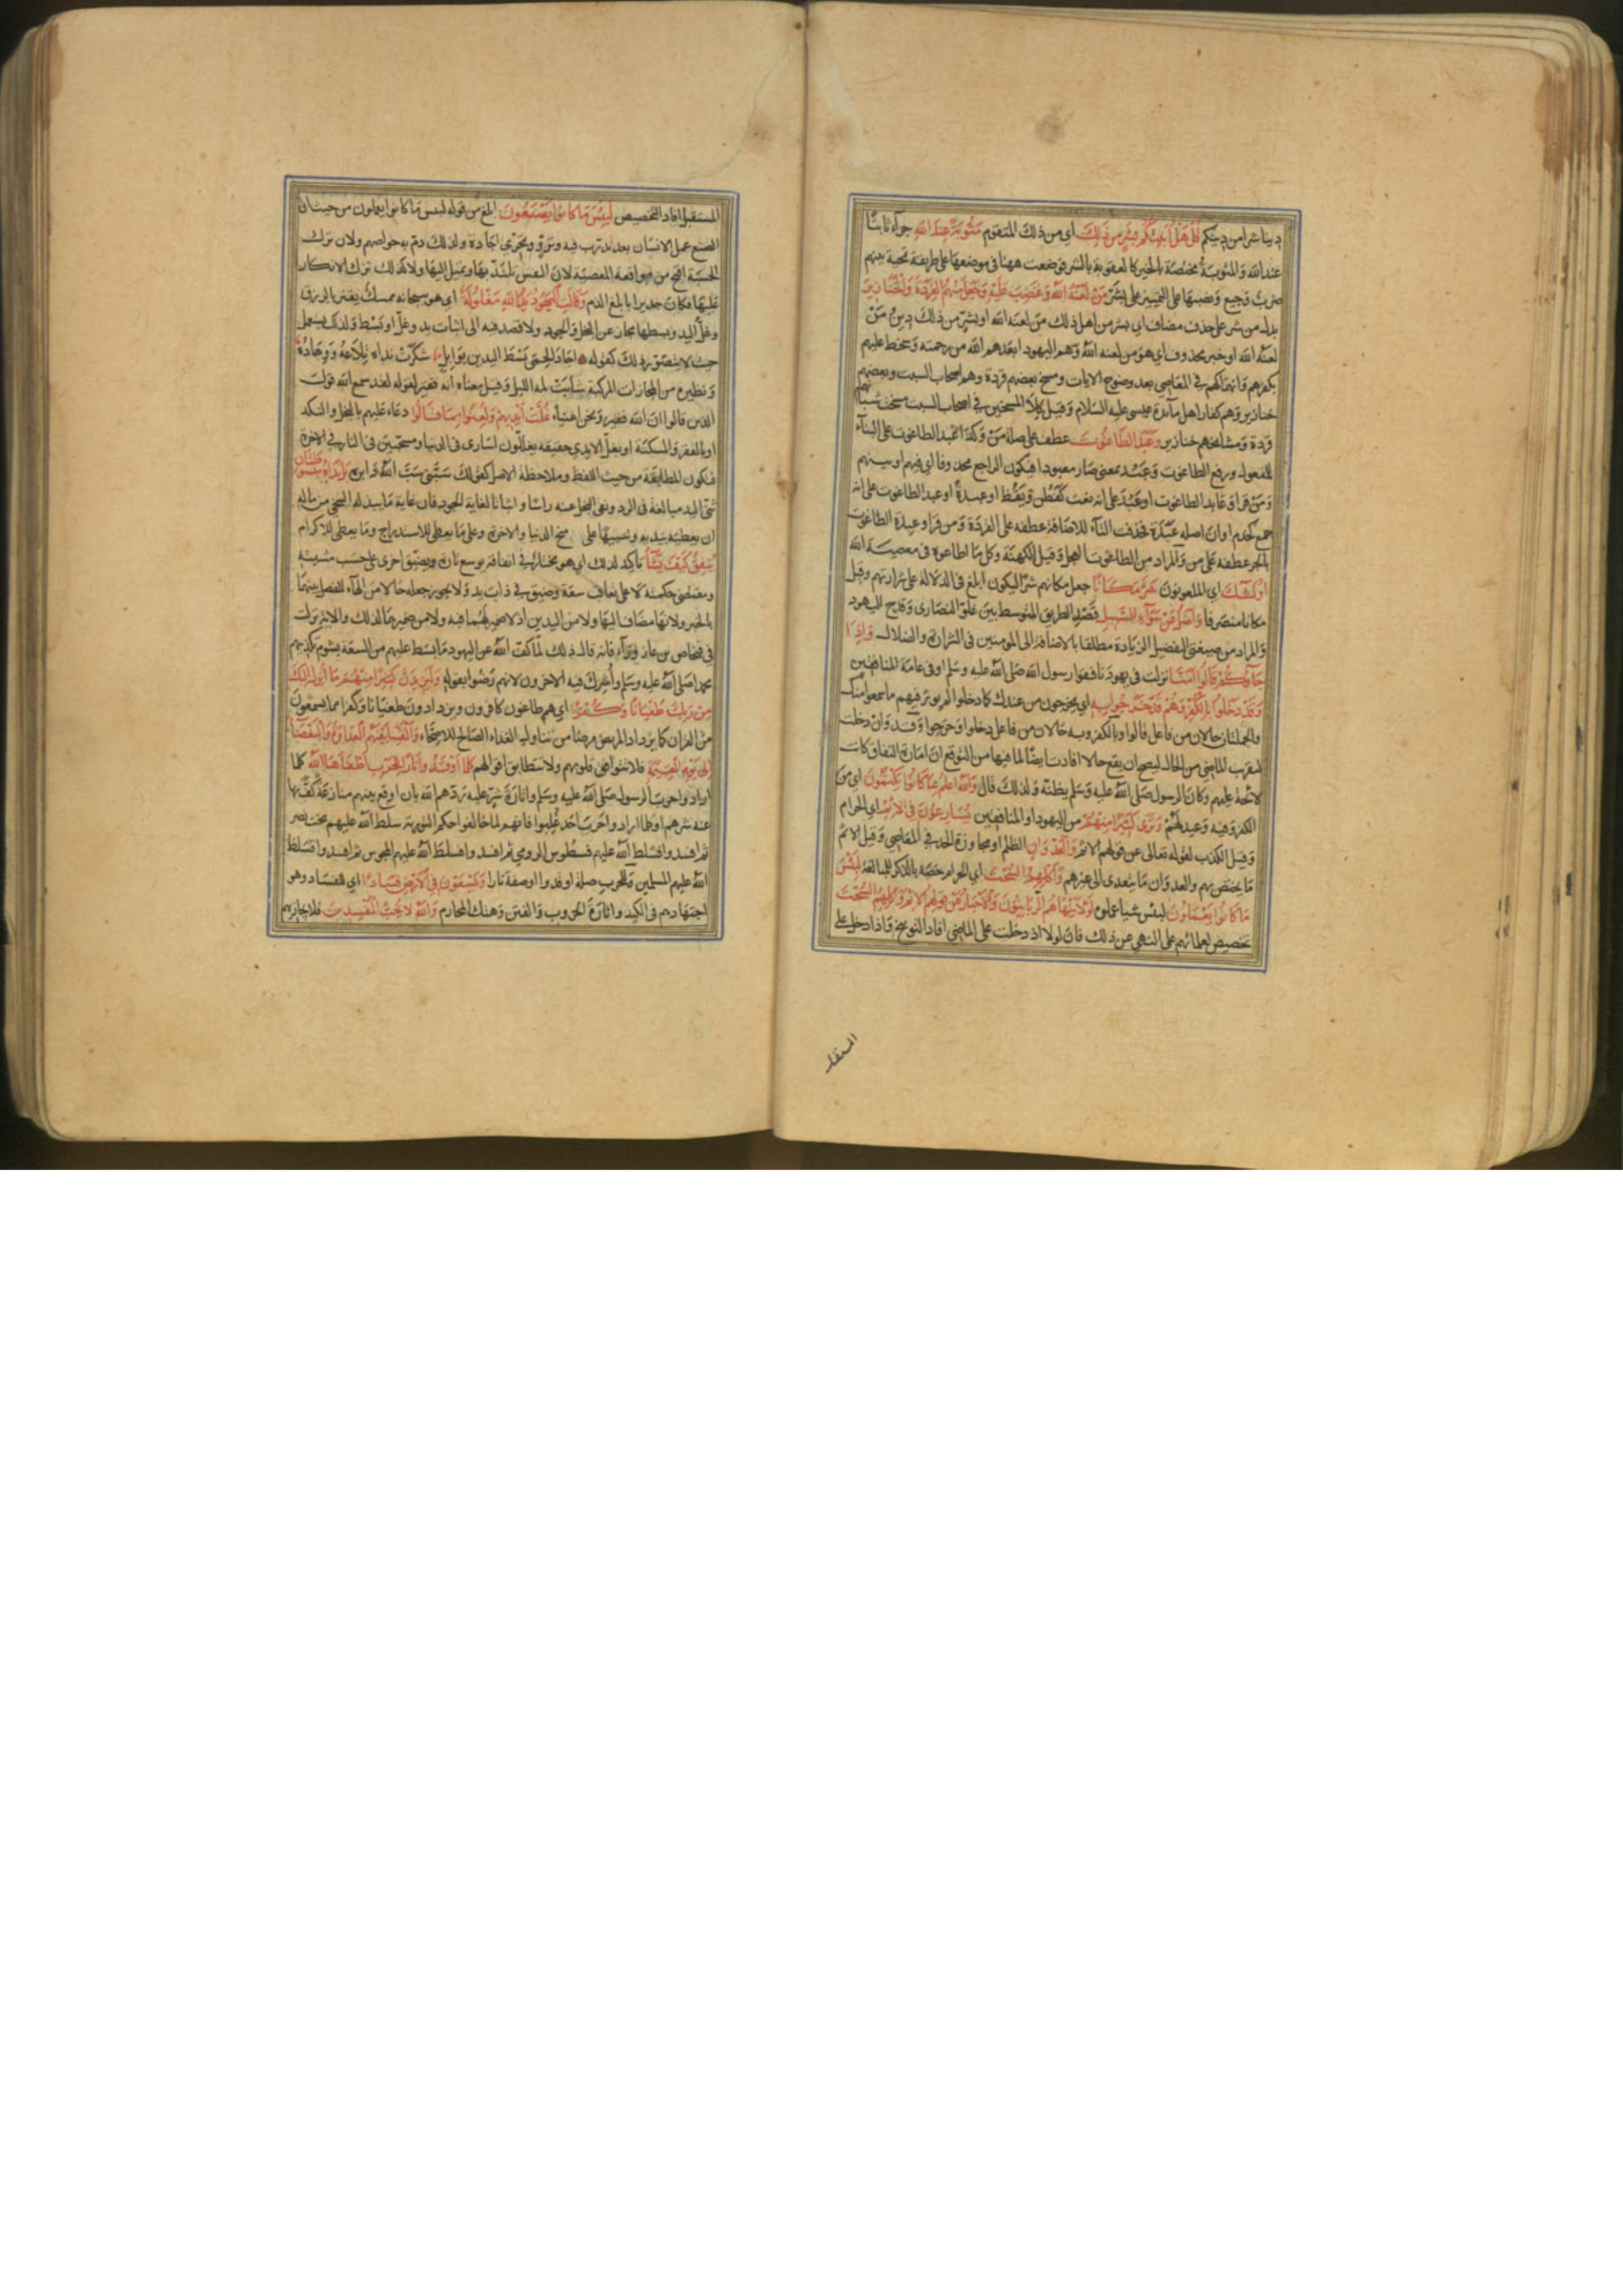 دينا شرا من دينكم قُلْ هَلْ أُنَبِّئُكُم بِشَرٍّ مِن ذَلِكَ اي من ذلك المنقوم مَثُوبَةً عِندَ اللهِ جزآء ثابتا
عند الله والمثوبة مختصة بالخير كالعقوبة بالشر فوضعت ههنا في موضعها على طريقة تحية بينهم
ضرب وجيع ونصبها على التمييز على بشر مَنْ لَعَنَهُ اللهُ وَغَضِبَ عَلَيْهِ وَجَعَلَ مِنْهُمُ القِرَدَةَ وَالْخَنَازِيرَ
بدل من شر على حذف مضاف اي بشر من اهل ذلك من لعنه الله او بشر من ذلك دين من
لعنه الله او خبر محذوف اي هو من لعنه الله وهم اليهود ابعدهم الله من رحمته وسخط عليهم
بكفرهم وانهماكهم في المعاصي بعد وضوح الايات ومسخ بعضهم قردة وهم اصحاب السبت وبعضهم
خنازير وهم كفار اهل مآئدة عيسى عليه السلام وقيل كلا المسخين في اصحاب السبت مسخت شبانهم
قردة ومشائخهم خنازير وَعَبَدَ الطَّاغُوتَ عطف على صلة من وكذا عُبد الطاغوت على البنآء
للمفعول ورفع الطاغوت وعَبُد بمعنى صار معبودا فيكون الراجع محذوفا اي فيهم او بينهم
ومن قرا وعابد الطاغوت او عَبُدَ على انه نعت كفطن ويقظ او عبدة او عبد الطاغوت على انه
جمع كخدم او ان اصله عبدة فحذفت التآء للاضافة عطفه على القردة ومن قرا وعبد الطاغوت
بالجر عطفه على من والمراد من الطاغوت العجل وقيل الكهنة وكل من اطاعوه في معصية الله
أُولَئِكَ اي الملعونون شَرٌّ مَكَانًا جعل مكانهم شرا ليكون ابلغ في الدلالة على شرارتهم وقيل
مكانا منصرفا وَأَضَلُّ عَنْ سَوَآءِ السَّبِيلِ قصد الطريق المتوسط بين غلو النصارى وقدح اليهود
والمراد من صيغتي التفضيل الزيادة مطلقا بالاضافة الى المومنين في الشرارة والضلال وَإِذَا
جَآؤُكُمْ قَالُوا آمَنَّا نزلت في يهود نافقوا رسول الله صلى الله عليه وسلم او في عامة المنافقين
وَقَدْ دَخَلُوا بِالْكُفْرِ وَهُمْ قَدْ خَرَجُوا بِهِ اي يخرجون من عندك كما دخلوا لم يوثر فيهم ما سمعوا منك
والجملتان حالان من فاعل قالوا وبالكفر وبه حالان من فاعل دخلوا وخرجوا وقد وان دخلت
لتقريب الماضي من الحال ليصح ان يقع حالا افادت ايضا لما فيها من التوقع ان امارة النفاق كانت
لائحة عليهم وكان الرسول صلى الله عليه وسلم يظنه ولذلك قال وَاللهُ أَعْلَمُ بِمَا كَانُوا يَكْتُمُونَ اي من
الكفر وفيه وعيد لهم وَتَرَى كَثِيرًا مِنْهُمْ من اليهود او المنافقين يُسَارِعُونَ فِي الإِثْمِ اي الحرام
وقيل الكذب لقوله تعالى عن قولهم الاثم وَالْعُدْوَانِ الظلم او مجاوزة الحد في المعاصي وقيل الاثم
ما يختص بهم والعدوان ما يتعدى الى غيرهم وَأَكْلِهِمُ السُّحْتَ اي الحرام خصه بالذكر للمبالغة لَبِئْسَ
مَا كَانُوا يَعْمَلُونَ لبئس شيأ عملوه لَوْلَا يَنْهَاهُمُ الرَّبَّانِيُّونَ وَالْأَحْبَارُ عَنْ قَوْلِهِمُ الإِثْمَ وَأَكْلِهِمُ السُّحْتَ
تخصيص لعلمائهم على النهي عن ذلك فان لولا اذ دخلت على الماضي افاد التوبيخ واذا دخل على
المستقبل
المستقبل افاد التخصيص لَبِئْسَ مَا كَانُوا يَصْنَعُونَ ابلغ من قوله لبئس ما كانوا يعملون من حيث ان
الصنع عمل الانسان بعد تدرب فيه وتروٍّ وتحري اجادة ولذلك ذم به خواصهم ولان ترك
الحسبة اقبح من مواقعة المعصية لان النفس تلتذ بها وتميل اليها ولا كذلك ترك الانكار
عليها فكان جديرا بابلغ الذم وَقَالَتِ الْيَهُودُ يَدُ اللهِ مَغْلُولَةٌ اي هو سبحانه ممسك يقتر بالرزق
وغل اليد وبسطها مجاز عن البخل والجود ولا قصد فيه الى اثبات يد وغل او بسط ولذلك يستعمل
حيث لا يتصور ذلك كقوله جَادَ الحِمَى بَسْطَ اليدين بِوَابِلٍ شَكَرَتْ نداه تِلاعُهُ وَوِهَادُهُ
ونظيره من المجازات المركبة شابت لمة الليل وقيل معناه انه فقير لقوله لقد سمع الله قول
الذين قالوا ان الله فقير ونحن اغنياء غُلَّتْ أَيْدِيهِمْ وَلُعِنُوا بِمَا قَالُوا دعاء عليهم بالبخل والنكد
او بالفقر والمسكنة او بغل الايدي حقيقة يغللون اسارى في الدنيا ومسحبين في النار في الاخرة
فتكون المطابقة من حيث اللفظ وملاحظة الاصل كقولك سَبَّني سَبَّ الله دابره بَلْ يَدَاهُ مَبْسُوطَتَانِ
ثنى اليد مبالغة في الرد ونفي البخل عنه واثباتا لغاية الجود فان غاية ما يبذله السخي من ماله
ان يعطيه بيديه وتنبيها على منح الدنيا والاخرة وعلى ما يعطى للاستدراج وما يعطى للاكرام
يُنْفِقُ كَيْفَ يَشَآءُ تاكيد لذلك اي هو مختار في انفاقه يوسع تارة ويضيق اخرى على حسب مشيئته
ومقتضى حكمته لا على تعاقب سعة وضيق في ذات يد ولا يجوز جعله حالا من الهآء للفصل بينهما
بالخبر ولانها مضاف اليها ولا من اليدين اذ لا ضمير لهما فيه ولا من ضميرهما لذلك والاية نزلت
في فنحاص بن عازوراء فانه قال ذلك لما كف الله عن اليهود ما بسط عليهم من السعة بشوم تكذيبهم
محمدا صلى الله عليه وسلم وأُشرك فيه الاخرون لانهم رضوا بقوله وَلَيَزِيدَنَّ كَثِيرًا مِنْهُمْ مَا أُنْزِلَ إِلَيْكَ
مِنْ رَبِّكَ طُغْيَانًا وَكُفْرًا اي هم طاغون كافرون ويزدادون طغيانا وكفرا مما يسمعون
من القران كما يزداد المريض مرضا من تناول الغذاء الصالح للاصحآء وَأَلْقَيْنَا بَيْنَهُمُ الْعَدَاوَةَ وَالْبَغْضَآءَ
إِلَى يَوْمِ الْقِيَامَةِ فلا تتوافق قلوبهم ولا تتطابق اقوالهم كُلَّمَا أَوْقَدُوا نَارًا لِلْحَرْبِ أَطْفَأَهَا اللهُ كلما
ارادوا حرب الرسول صلى الله عليه وسلم واثارة شر عليه ردهم الله بان اوقع بينهم منازعة كف بها
عنه شرهم او كلما ارادوا حرب احد غُلبوا فانهم لما خالفوا حكم التورية سلط الله عليهم بخت نصر
ثم افسدوا فسلط الله عليهم فسطوس الرومي ثم افسدوا فسلط الله عليهم المجوس ثم افسدوا فسلط
الله عليهم المسلمين وللحرب صلة اوقدوا او صفة نارا وَيَسْعَوْنَ فِي الْأَرْضِ فَسَادًا اي للفساد وهو
اجتهادهم في الكيد واثارة الحروب والفتن وهتك المحارم وَاللهُ لَا يُحِبُّ الْمُفْسِدِينَ فلا يجازيهم